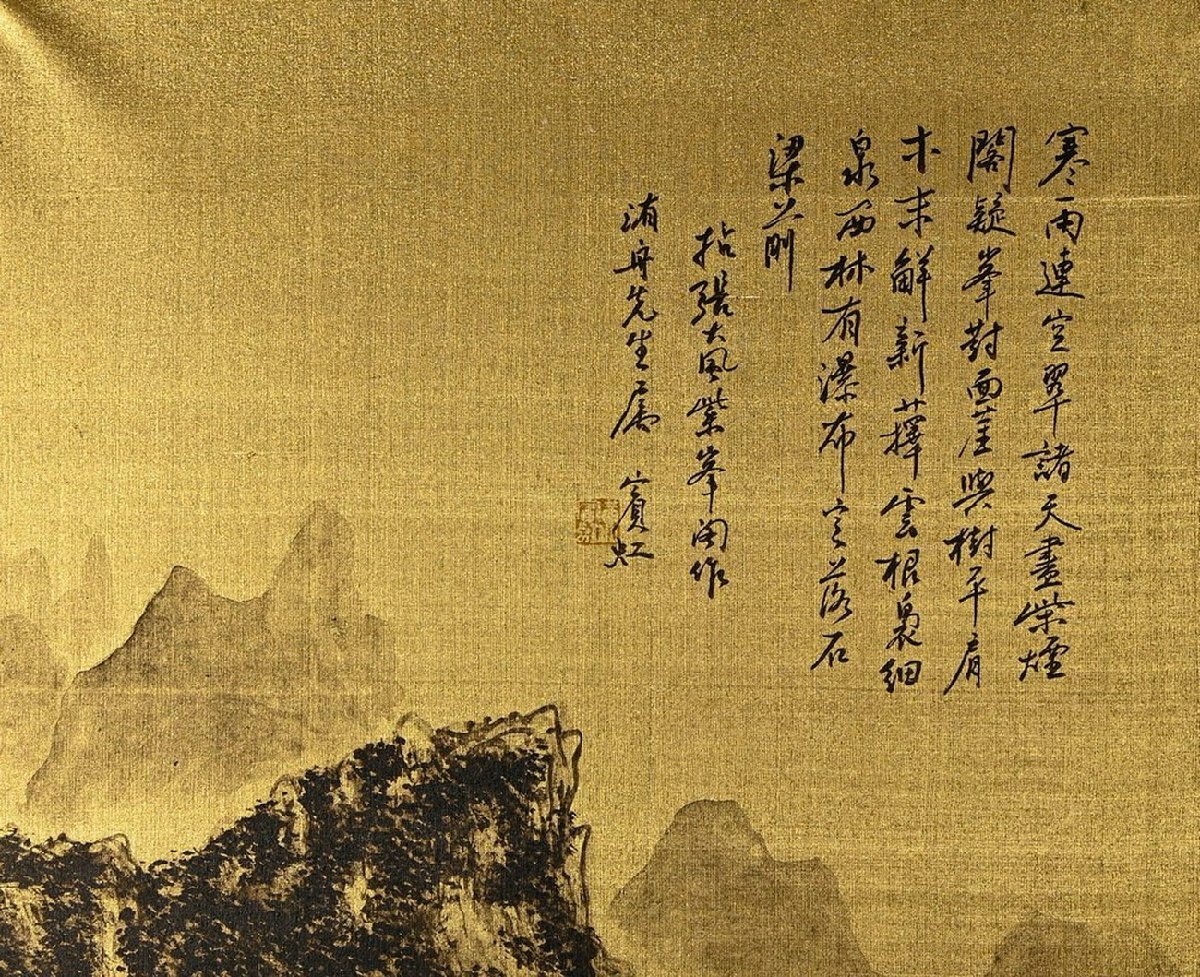 寒雨連空翠諸天畫紫煙
閣疑峯對面崖與樹平肩
木末觧新蘀雲根裊細
泉西林有瀑布空落石
梁前
拈張大風紫峯閣作
洧舟先生属 賓虹